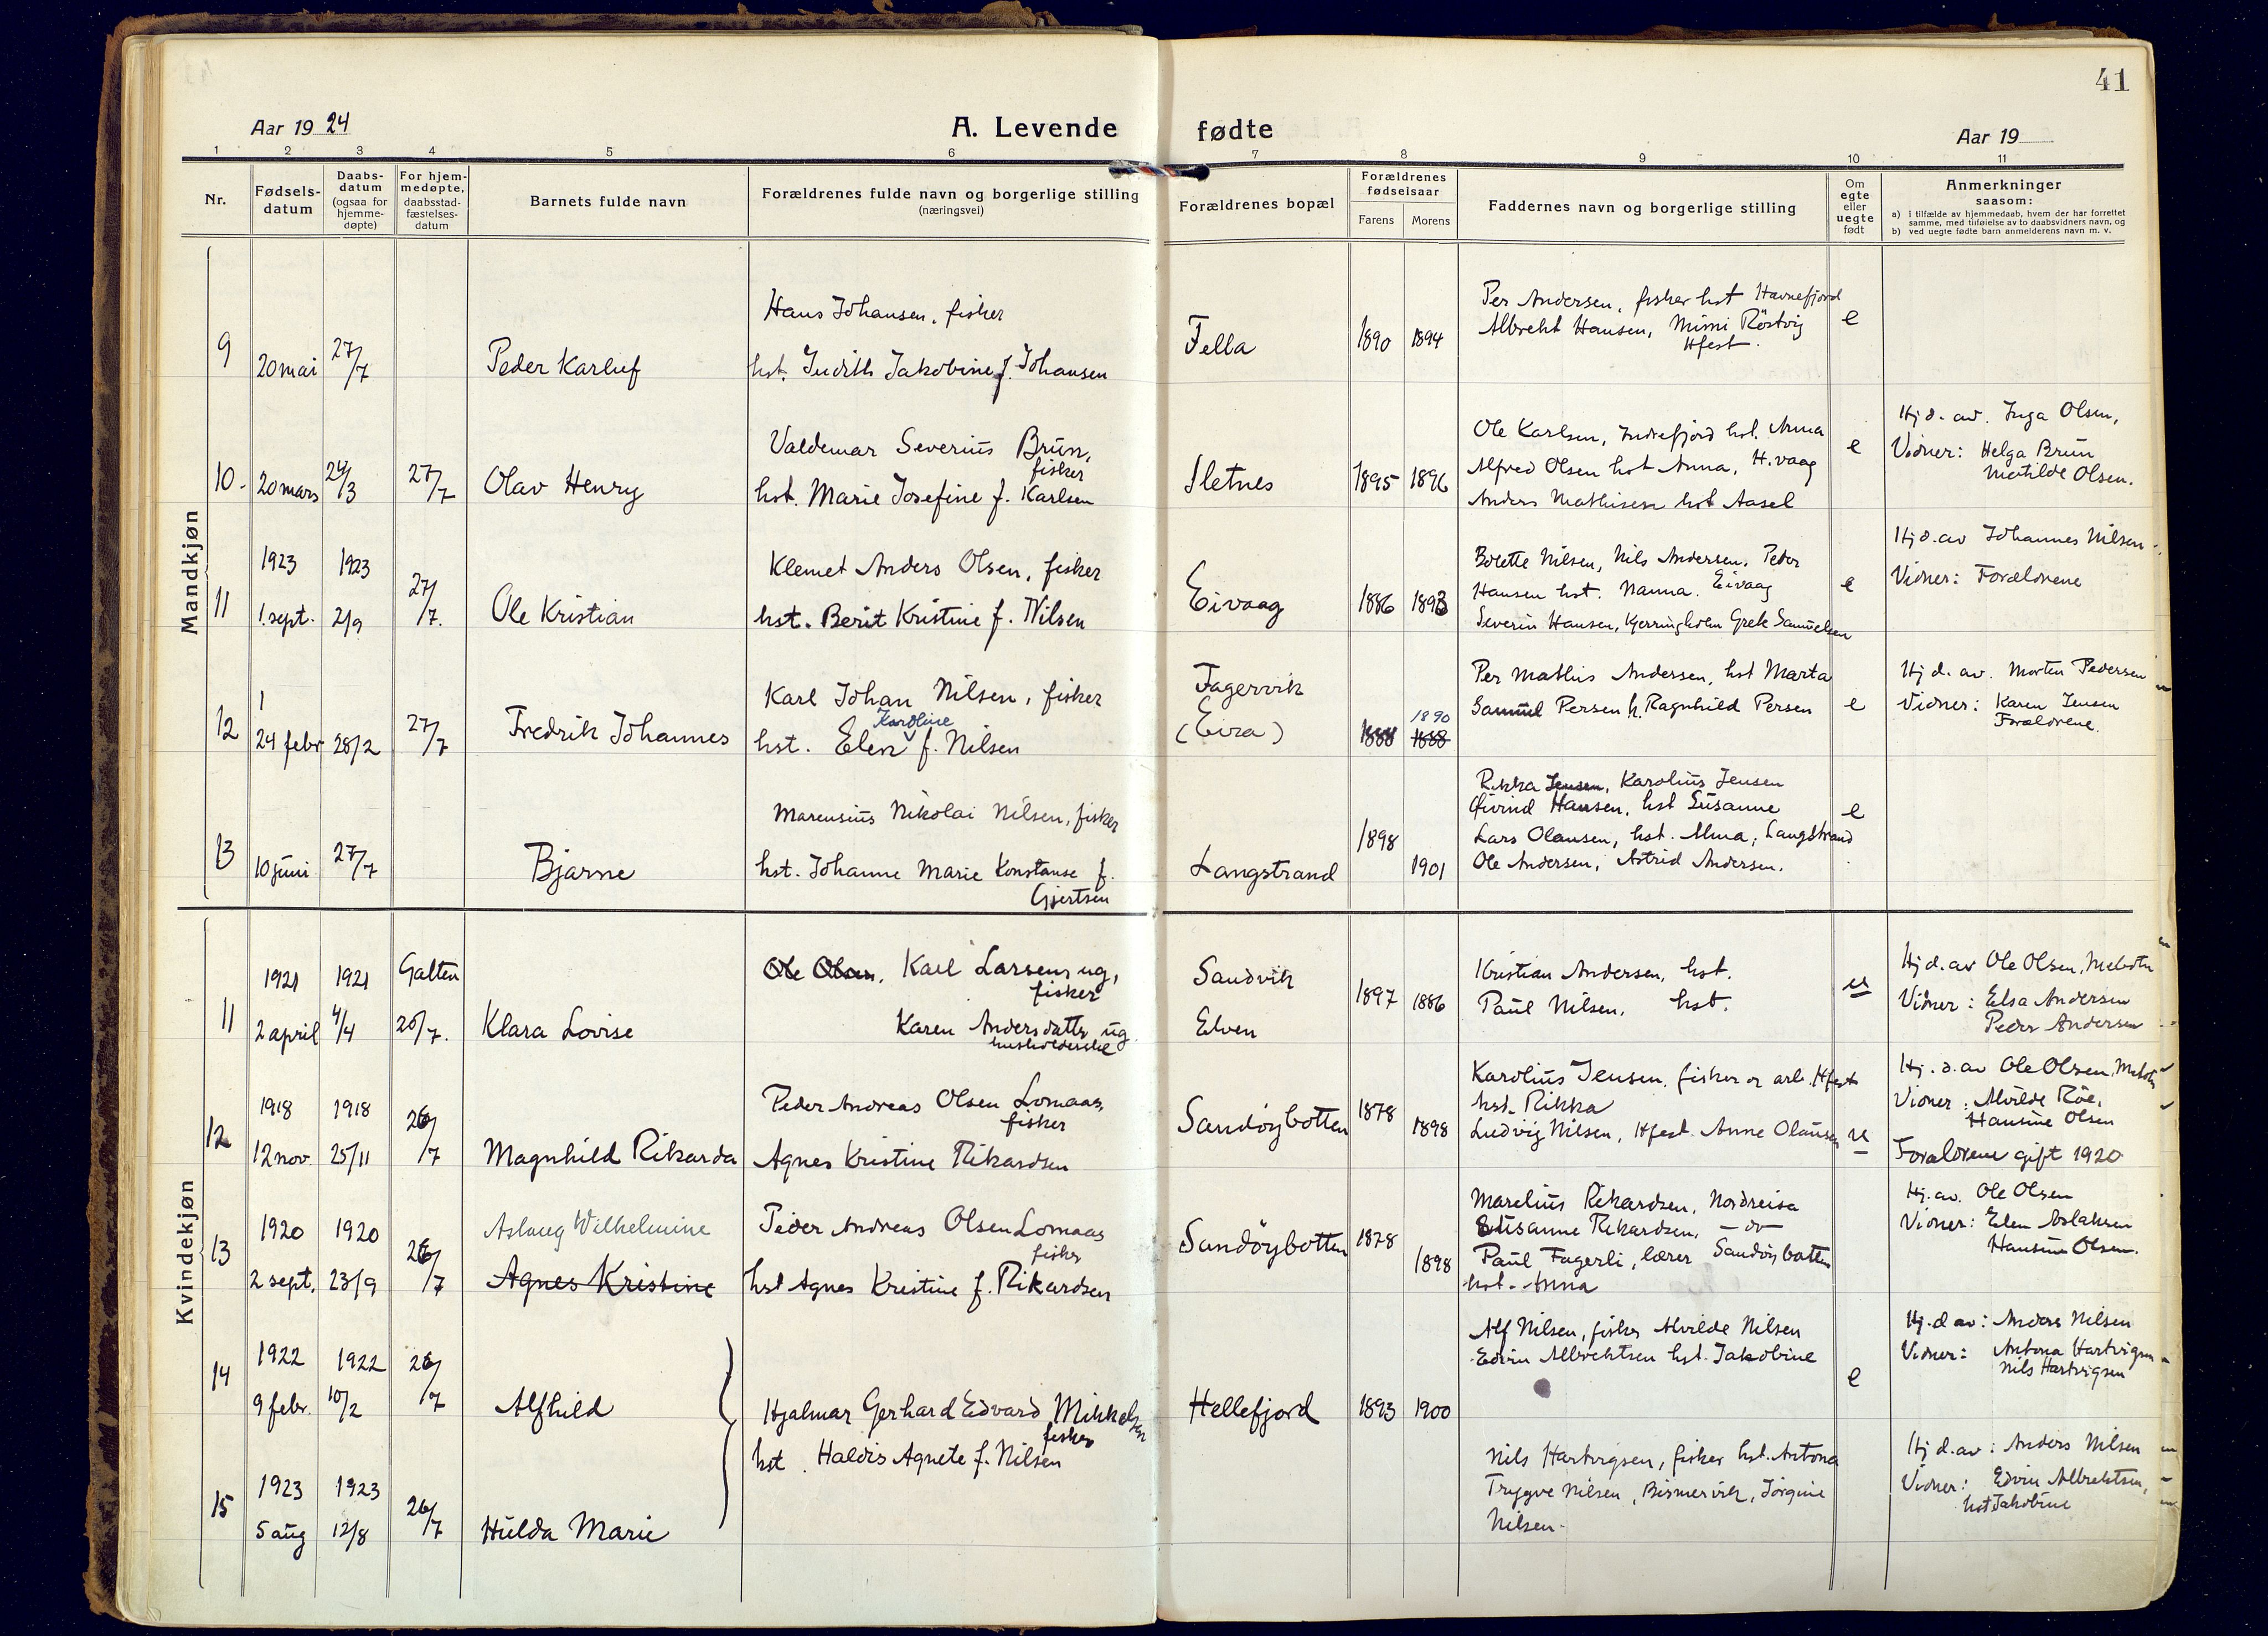 41
Aar 19 24
A. Levende fødte
Aar 19
1 2 3 4 5 6 7 8 9 10 11
Nr.
Fødsels-
datum
Daabs-
datum
(ogsaa for
hjemme-
døpte)
For hjem-
medøpte,
daabsstad-
fæstelses-
datum
Barnets fulde navn
Forældrenes fulde navn og borgerlige stilling
(næringsvei)
Forældrenes bopæl
Forældrenes
fødselsaar
Farens Morens
Faddernes navn og borgerlige stilling
Om
egte
eller
uegte
født
Anmerkninger
saasom:
a) i tilfælde av hjemmedaab, hvem der har forrettet
samme, med tilføielse av to daabsvidners navn, og
b) ved uegte fødte barn anmelderens navn m. v.
Mandkjøn
9
20 mai
27/7
Peder Karluf
Hans Johansen, fisker
hst. Judith Jakobine f. Johansen
Fella
1890 1894
Per Andersen, fisker hst Havnefjord
Albrekt Hansen, Mimi Röstvig
Hfest.
e
10.
20 mars
24/3
27/7
Olav Henry
Valdemar Severius Brun,
fisker
hst. Marie Josefine f. Karlsen
Sletnes
1895 1896
Ole Karlsen, Indrefjord hst. Anna
Alfred Olsen hst Anna, H.vaag
Anders Mathisen hst Aasel
e
Hj d. av. Inga Olsen,
Vidner: Helga Brun
Matilde Olsen.
11
1923
1. sept.
1923
2/9
27/7.
Ole Kristian
Klemet Anders Olsen, fisker
hst. Berit Kristine f. Nilsen
Eivaag
1886 1893
Bolette Nilsen, Nils Andersen, Peder
Hansen hst. Nanna. Eivaag
Severin Hansen, Kjerringholm Grete Samuelsen
e
Hj d. av Johannes Nilsen
Vidner: Forældrene
12
24 febr
28/2
27/7
Fredrik Johannes
Karl Johan Nilsen, fisker
Karoline
hst. Elen f. Nilsen
Fagervik
(Eira)
1888
1890
1888
Per Mathis Andersen, hst Marta
Samuel Persen h. Ragnhild Persen
e
Hj d. av. Morten Pedersen
Vidner: Karen Jensen
Forældrene.
13
10 juni
27/7
Bjarne
Marensius Nikolai Nilsen, fisker
hst. Johanne Marie Konstanse f.
Gjertsen
Langstrand
1898
1901
Rikka Jensen, Karolius Jensen
Øivind Hansen, hst Susanne
Lars Olausen, hst. Alma, Langstrand
Ole Andersen, Astrid Andersen.
e
Kvindekjøn
11
1921
2 april
1921
4/4
Galten
25/7.
Klara Lovise
Ole Olsen, Karl Larsen, ug,
fisker
Karen Andersdatter ug.
husholderske
Sandvik
Elven
1897 1886
Kristian Andersen, hst.
Paul Nilsen, hst.
u
Hj d. av Ole Olsen,
Vidner: Elsa Andersen
Peder Andersen
12
1918
12 nov.
1918
25/11
26/7
Magnhild Rikarda
Peder Andreas Olsen Lomaas,
fisker
Agnes Kristine Rikardsen
Sandøybotten
1878
1898
Karolius Jensen, fisker og arb. Hfest
hst. Rikka
Ludvig Nilsen, Hfest Anne Olausen
u
Hj. d. av Ole Olsen,
Vidner: Alvilde Röe,
Hansine Olsen
Forældrene gift 1920
13
1920
2 sept.
1920
23/9
26/7
Aslaug Wilhelmine
Agnes Kristine
Peder Andreas Olsen Lomaas
fisker
hst Agnes Kristine f. Rikardsen
Sandøybotten
1878
1898
Marelius Rikardsen, Nordreisa
Susanne Rikardsen, — do —
Paul Fagerli, lærer Sandøybotten
hst. Anna
Hj. av. Ole Olsen
Vidner: Elen Aslaksen
Hansine Olsen.
14
1922
9 febr.
1922
10/2
26/7
Alfhild
Hjalmar Gerhard Edvard Mikkelsen
fisker
hst. Haldis Agnete f. Nilsen
Hellefjord
1893 1900
Alf Nilsen, fisker Alvilde Nilsen
Edvin Albrektsen hst. Jakobine
e
Hj. d av: Anders Nilsen
Vidner: Antona Hartvigsen
Nils Hartvigsen
15
1923
5 aug
1923
12/8
26/7
Hulda Marie
Nils Hartvigsen, fisker hst. Antona
Trygve Nilsen, Bismervik, Jörgine
Nilsen.
Hj d. av: Anders Nilsen
Vidner: Edvin Albrektsen,
hst Jakobine